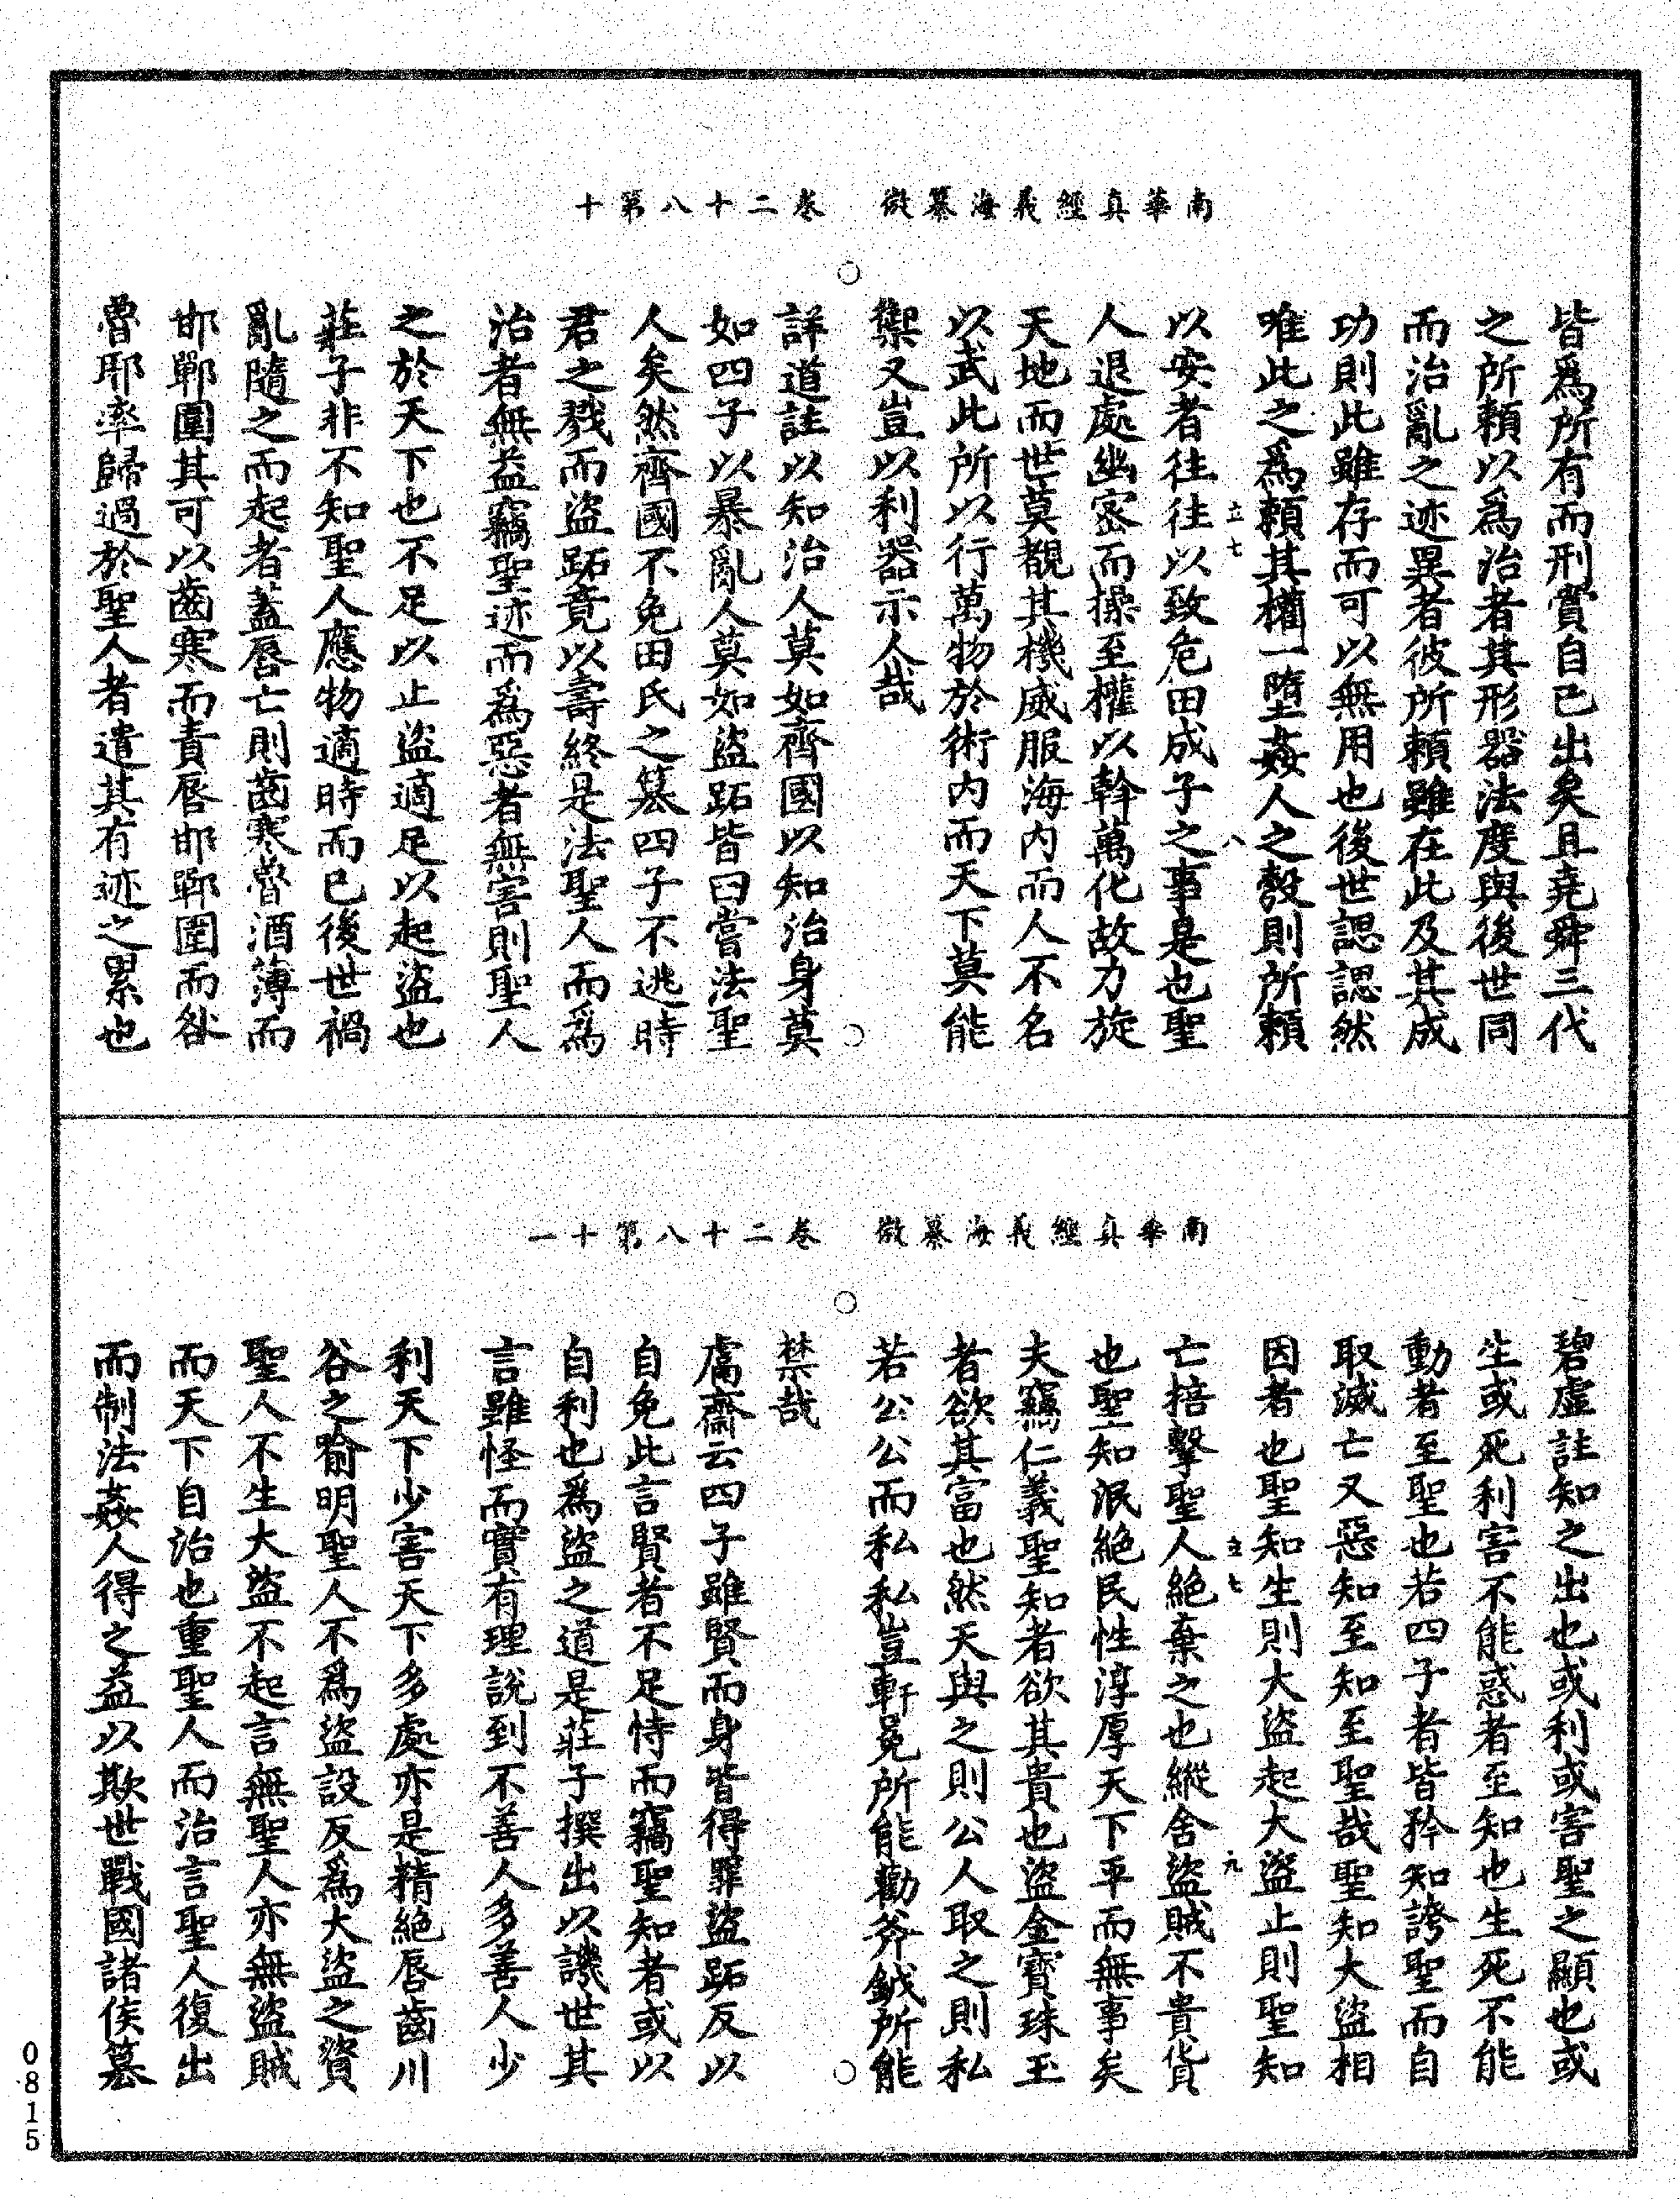 南華真經義海纂微　卷二十八第十
皆爲所有而刑賞自已出矣且堯舜三代
之所賴以爲治者其形器法度與後世同
而治亂之迹異者彼所賴雖在此及其成
功則此雖存而可以無用也後世認認然
唯此之爲賴其權一墮姦人之彀則所賴
立七　八
以安者往往以致危田成子之事是也聖
人退處幽密而操至權以斡萬化故力旋
天地而世莫覩其機威服海內而人不名
以武此所以行萬物於術內而天下莫能
禦又豈以利器示人哉
詳道註以知治人莫如齊國以知治身莫
如四子以暴亂人莫如盜跖皆曰嘗法聖
人矣然齊國不免田氏之簒四子不逃時
君之戮而盜跖竟以壽終是法聖人而爲
治者無益竊聖迹而爲惡者無害則聖人
之於天下也不足以止盜適足以起盜也
莊子非不知聖人應物適時而已後世禍
亂隨之而起者蓋唇亡則齒寒魯酒薄而
邯鄲圍其可以齒寒而責唇邯鄲圍而咎
魯耶率歸過於聖人者遣其有迹之累也
南華真經義海纂微　卷二十八第十一
碧虛註知之出也或利或害聖之顯也或
生或死利害不能惑者至知也生死不能
動者至聖也若四子者皆矜知誇聖而自
取滅亡又惡知至知至聖哉聖知大盜相
因者也聖知生則大盜起大盜止則聖知
立七　九
亡掊擊聖人絕棄之也縱舍盜賊不貴貨
也聖知泯絕民性淳厚天下平而無事矣
夫竊仁義聖知者欲其貴也盜金寶珠玉
者欲其富也然天與之則公人取之則私
若公公公而私私私豈軒冕所能勸斧鉞所能
禁哉
鬳齋云四子雖賢而身皆得罪盜跖反以
自免此言賢者不足恃而竊聖知者或以
自利也爲盜之道是莊子撰出以譏世其
言雖怪而實有理說到不善人多善人少
利天下少害天下多處亦是精絕唇齒川
谷之喻明聖人不爲盜設反爲大盜之資
聖人不生大盜不起言無聖人亦無盜賊
而天下自治也重聖人而治言聖人復出
而制法姦人得之益以欺世戰國諸侯簒
0815